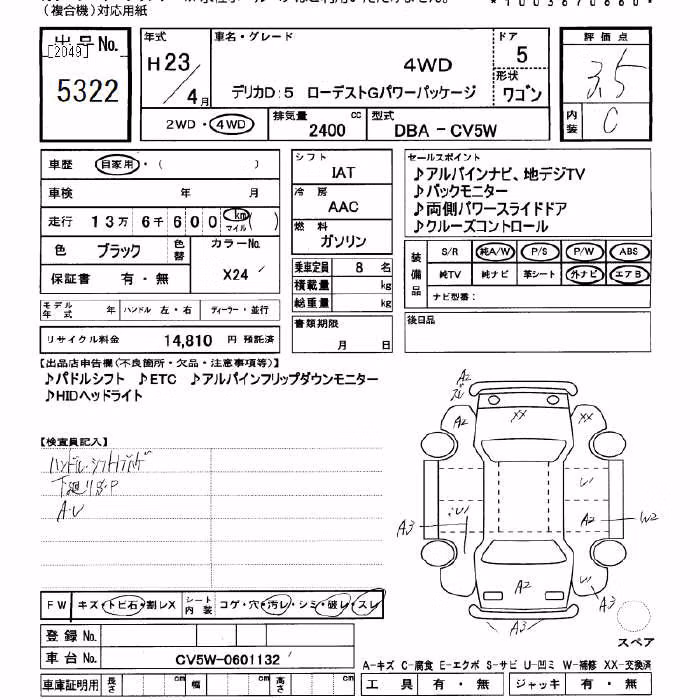 (複合機)対応用紙
出品No.
[2049]
5322
年式
H23/4月
車名・グレード
4WD
デリカD:5 ローデストGパワーパッケージ
ドア
5
形状
ワゴン
2WD・4WD
排気量
2400 cc
型式
DBA-CV5W
評価点
3.5
内装
C
車歴 自家用・( )
車検 年 月
走行 13万6千600 km マイル ( )
色 ブラック 色替
カラーNo.
X24
保証書 有・無
モデル年式 年 ハンドル 左・右 ディーラー・並行
リサイクル料金 14,810 円 預託済
シフト
IAT
冷房
AAC
燃料
ガソリン
乗車定員 8 名
積載量 kg
総重量 kg
書類期限
月 日
セールスポイント
♪アルパインナビ、地デジTV
♪バックモニター
♪両側パワースライドドア
♪クルーズコントロール
装備品
S/R 純A/W P/S P/W ABS
純TV 純ナビ 革シート 外ナビ エアB
ナビ型番:
後日品
【出品店申告欄(不良箇所・欠品・注意事項等)】
♪パドルシフト ♪ETC ♪アルパインフリップダウンモニター
♪HIDヘッドライト
【検査員記入】
A・U
FW キズ・トビ石・割レX
シート内装 コゲ・穴・汚レ・シミ・破レ・スレ
登録No.
車台No. CV5W-0601132
車庫証明用 長さ cm 幅 cm 高さ cm
A2
A2
XX
A2
U
U
A3
A2
W2
A2
U
A3
A3
スペア
A-キズ C-腐食 E-エクボ S-サビ U-凹ミ W-補修 XX-交換済
工具 有・無 ジャッキ 有・無